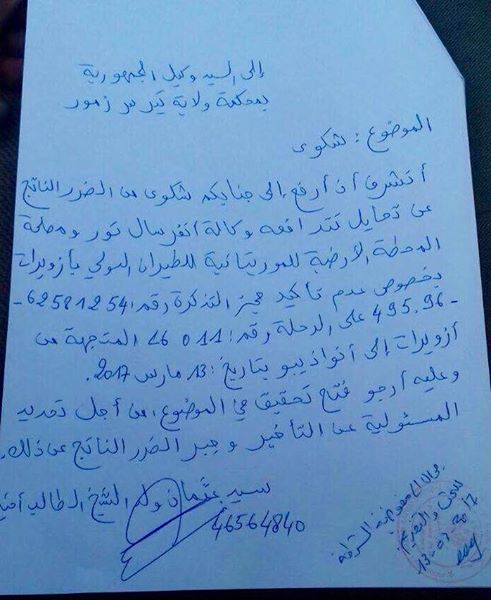 إلى السيد وكيل الجمهورية
بمحكمة ولاية تيرس زمور
الموضوع: شكوى
أتشرف أن أرفع إلى جنابكم شكوى من الضرر الناتج
عن تحايل تتدافعه وكالة انفرسال تور ومصلحة
المحطة الأرضية للموريتانية للطيران الدولي بأزويرات
بخصوص عدم تأكيد حجز التذكرة رقم: 62581254-
-495.96 على الرحلة رقم: 16011 المتجهة من
أزويرات إلى أنواذيبو بتاريخ: 13 مارس 2017.
وعليه أرجو فتح تحقيق في الموضوع، من أجل تحديد
المسئولية عن التأخير وجبر الضرر الناتج عن ذلك.
سيد عثمان ولد الشيخ الطالب
46564840
مفوضية الشرطة
للبحث والتقديم
13-03-2017